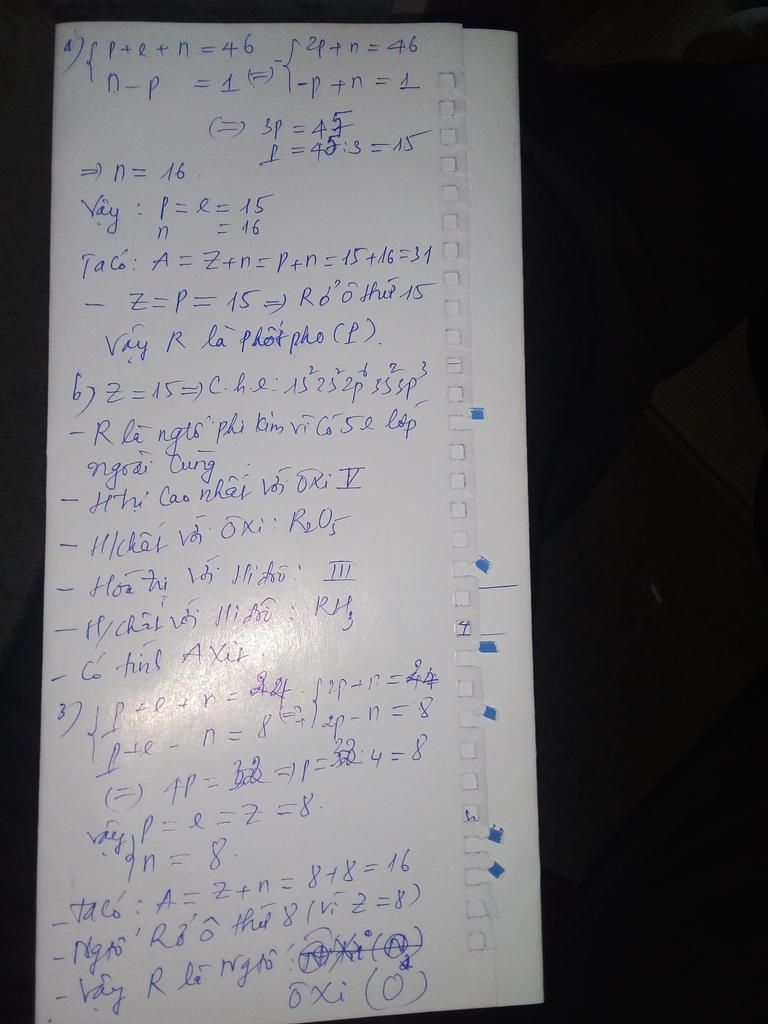 a) { p + e + n = 46 (=) { 2p + n = 46
n - p = 1 -p + n = 1
(=) 3p = 45
p = 45 : 3 = 15
=> n = 16.
Vậy : p = e = 15
n = 16
Ta có: A = Z + n = p + n = 15 + 16 = 31
- Z = P = 15 => R ở ô thứ 15
Vậy R là phốt pho (P).
b) Z = 15 => C.h.e: 1s² 2s² 2p⁶ 3s² 3p³
- R là ngtố phi kim vì có 5e lớp
ngoài cùng
- H trị cao nhất với ôxi V
- H/chất với ôxi: R₂O₅
- Hoá trị với Hiđrô: III
- H/chất với Hiđrô: RH₃
- Có tính Axit.
3) { p + e + n = 24 (=) { 2p + n = 24
p + e - n = 8 2p - n = 8
(=) 4p = 32 => p = 32 : 4 = 8
Vậy { p = e = z = 8.
n = 8.
- Ta có: A = Z + n = 8 + 8 = 16
- Ngtố R ở ô thứ 8 (vì Z = 8)
- Vậy R là Ngtố :
ôxi (O)
4